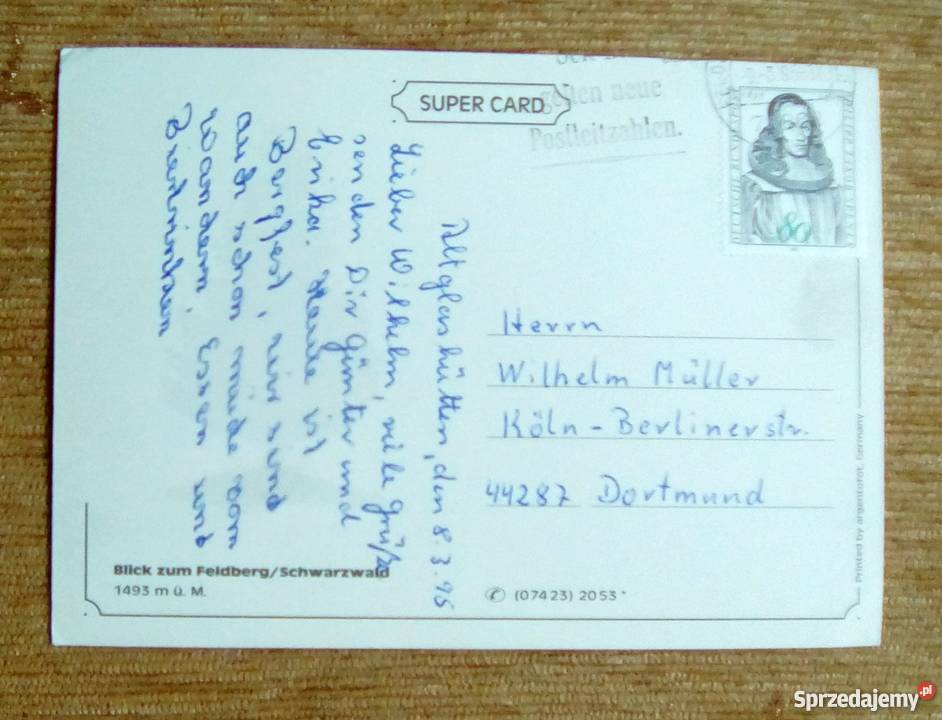 SUPER CARD
gelten neue
Postleitzahlen.
DEUTSCHE BUNDESPOST
80
Altglashütten, den 8.3.95
Lieber Wilhelm, viele Grüße
senden Dir Günter und
Erika. Heute ist
Bergfest, wir sind
auch schon müde vom
Wandern, Essen und
Biertrinken
Herrn
Wilhelm Müller
Köln-Berlinerstr.
44287 Dortmund
Blick zum Feldberg/Schwarzwald
1493 m ü. M.
✆ (07423) 2053*
Printed by argentofot, Germany
Sprzedajemy.pl